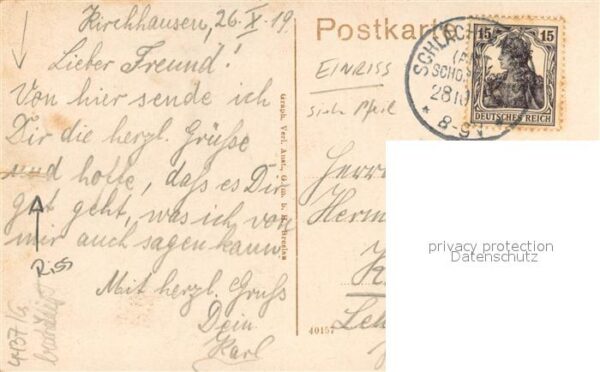 Kirchhausen, 26. X. 19.
Lieber Freund!
Von hier sende ich
Dir die herzl. Grüße
und hoffe, dass es Dir
gut geht, was ich von
mir auch sagen kann.
Mit herzl. Gruss
Dein
Karl
Riss
4437/G
Graph. Verl. Anst., G. m. b. H., Breslau
40157
Postkarte
EINRISS
siehe Pfeil
SCHLACH
SCHO
28 10
8-9V
15 15
DEUTSCHES REICH
Herrn
Herm
privacy protection
Datenschutz